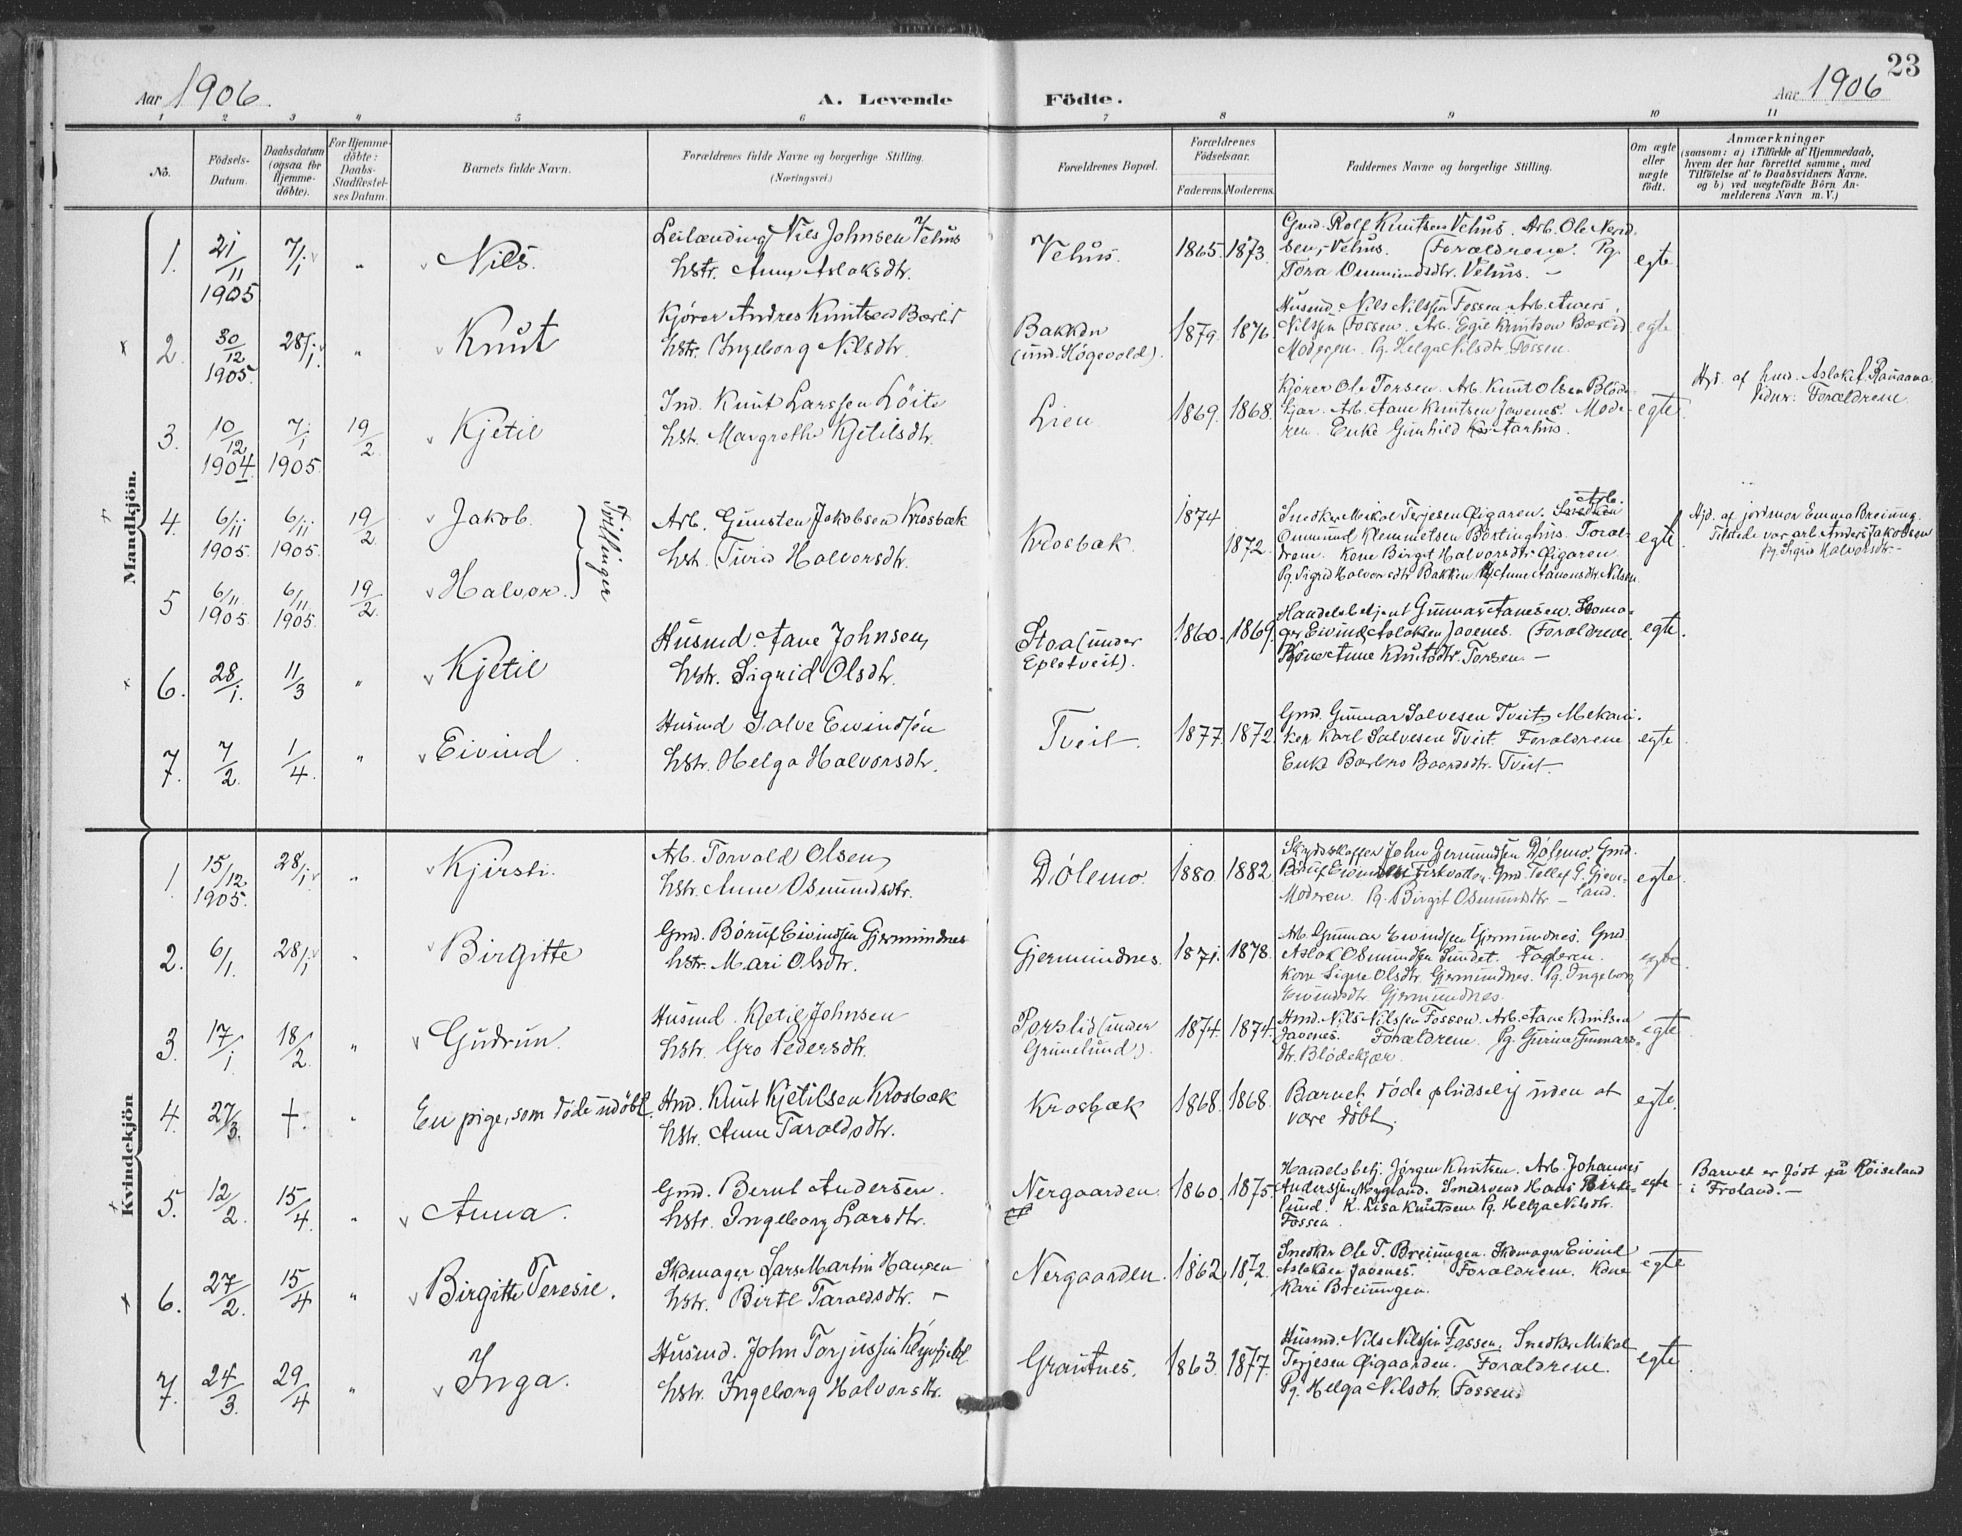 23
Aar 1906. A. Levende Födte. Aar 1906
1 2 3 4 5 6 7 8 9 10 11
No.
Födsels-
Datum.
Daabsdatum
(ogsaa for
Hjemme-
döbte).
For Hjemme-
döbte:
Daabs-
Stadfæstel-
ses Datum.
Barnets fulde Navn.
Forældrenes fulde Navne og borgerlige Stilling.
(Næringsvei.)
Forældrenes Bopæl.
Forældrenes
Födselsaar.
Faderens. Moderens.
Faddernes Navne og borgerlige Stilling.
Om ægte
eller
uægte
födt.
Anmærkninger
(saasom: a) i Tilfælde af Hjemmedaab,
hvem der har forrettet samme, med
Tilföielse af to Daabsvidners Navne.
og b) ved uægtefödte Börn An-
melderens Navn m. V.)
Mandkjön.
1. 21/11 1905 7/1 " Nils.
Leilænding Nils Johnsen Vehus
hstr. Anne Aslaksdtr.
Vehus. 1865. 1873.
Gmd. Rolf Knutsen Vehus. Arb. Ole Nerid-
sen, Vehus. (Forældrene. Pg.
Tora Ommundsdtr. Vehus. –
egte
2. 30/12 1905. 28/1. " Knut
Kjører Andres Knutsen Bærlid
hstr. Ingeborg Nilsdtr.
Bakken
(und. Högevold).
1879. 1876.
Husmd. Nils Nilssen Fossen. Arb.
Nilssen Fossen. Arb. Egil Knutson
Moderen. Pg. Helga Nilsdtr. Fossen.
egte
3. 10/12 1904 7/1 1905. 19/2 Kjetil
Ind. Knut Larssen Löite
hst. Margrethe Kjetilsdtr.
Lien 1869. 1868.
Kjører Ole Torsen. Arb. Knut Olsen Blöde-
kjær. Arb. Aane Knutsen Jovenes. Mode-
ren. Enke Gunhild Aarhus.
egte
Hjd. af hmd. Aslak
Vidner: Forældrene
4. 6/11 1905. 6/11 1905. 19/2 Jakob.
5 6/11 1905. 6/11 1905. 19/2 Halvor.
Tvillinger
Arb. Gunsten Jakobsen Krosbæk
hst. Turid Halvorsdtr.
Krosbæk. 1874 1872.
Snedker Mikal Terjesen Oigaren. Arb.
Ommund Klemmetsen Börtinghus. Foræl-
drene. Kone Birgit Halvorsdtr. Oigaren
Pg. Sigrid Halvorsdtr Bakken Anne Aanonsdtr. Nilsen
egte
Hjd. af jordmor Emma Breiung.
Tilstede var arb. Anders Jakobsen
pg. Sigrid Halvorsdtr. –
6. 28/1. 11/3 " Kjetil
Husmd. Aane Johnsen,
hstr. Sigrid Olsdtr.
Stoa (under
Epletveit).
1860. 1869.
Handelsbetjent Gunnar Aanesen. Skoma-
ger Eivind Aslaksen Jovenes. (Forældrene.
Kone Anne Knutsdtr. Torsen. –
egte.
7. 7/2 1/4. " Eivind
Husmd Salve Eivindsön
hstr. Helga Halvorsdtr.
Tveit. 1877. 1872
Gmd. Gunnar Salvesen Tveit, Mekani-
ker Karl Salvesen Tveit. Forældrene
Enke Barbro Baardsdtr. Tveit.
egte
Kvindekjön
1. 15/12 1905. 28/1. " Kjirsti.
Arb. Torvald Olsen,
hstr. Anne Osmundsdtr.
Dölemo. 1880. 1882
Skydsskaffer John Gjermundsen Dölemo. Gmd.
Böruf Eivindsen. Gmd. Tellef G. Gjeve-
Moderen. Pg. Birgit Osmundsdtr – land.
egte
2. 6/1. 28/1 " Birgitte
Gmd. Böruf Eivindsen Gjermundnes
hstr. Mari Olsdtr.
Gjermundnes. 1871. 1878.
Arb. Gunnar Eivindsen Gjermundnes. Gmd.
Aslak Osmundsen Sundet. Faderen.
Kone Signe Olsdtr. Gjermundnes. Pg. Ingeborg
Eivindsdtr. Gjermundnes.
egte
3. 17/1. 18/2 " Gudrun.
Husmd. Kjetil Johnsen
hstr. Gro Pedersdtr.
Porslid (under
Grunelund).
1874. 1874.
Hmd. Nils Nilssen Fossen. Arb. Aane Knutsen
Jovenes. Forældrene. Pg. Gurine Gunnars-
dtr. Blödekjær.
egte
4. 27/3. †. " En pige, som döde udöbt.
Hmd. Knut Kjetilsen Krosbæk
hstr. Anne Taraldsdtr.
Krosbæk 1868. 1868.
Barnet döde pludselig uden at
være döbt.
egte.
5. 12/2 15/4 " Anna.
Gmd. Bernt Andersen.
hstr. Ingeborg Larsdtr.
Nergaarden. 1860. 1875.
Handelsbetj. Jørgen Knutsen. Arb. Johannes
Anderssen Mygland. Smedsvend Hans Birke-
lund. K. Lisa Knutsen Pg. Helga Nilsdtr.
Fossen.
egte
Barnet er födt på Röiseland
i Froland. –
6. 27/2. 15/4 " Birgitte Teresie.
Skomager Lars Martin Hansen
hstr. Birte Taraldsdtr. –
Nergaarden. 1862. 1872.
Snedker Ole T. Breiungen. Skomager Eivind
Aslaksen Jovenes. Forældrene. Kone
Kari Breiungen.
egte
7. 24/3. 29/4 " Inga.
Husmd. John Torjussen
hstr. Ingeborg Halvorsdtr.
Grautnes. 1863. 1877.
Husmd. Nils Nilssen Fossen. Snedker Mikal
Terjesen Oigaarden. Forældrene.
Pg. Helga Nilsdtr. Fossen.
egte